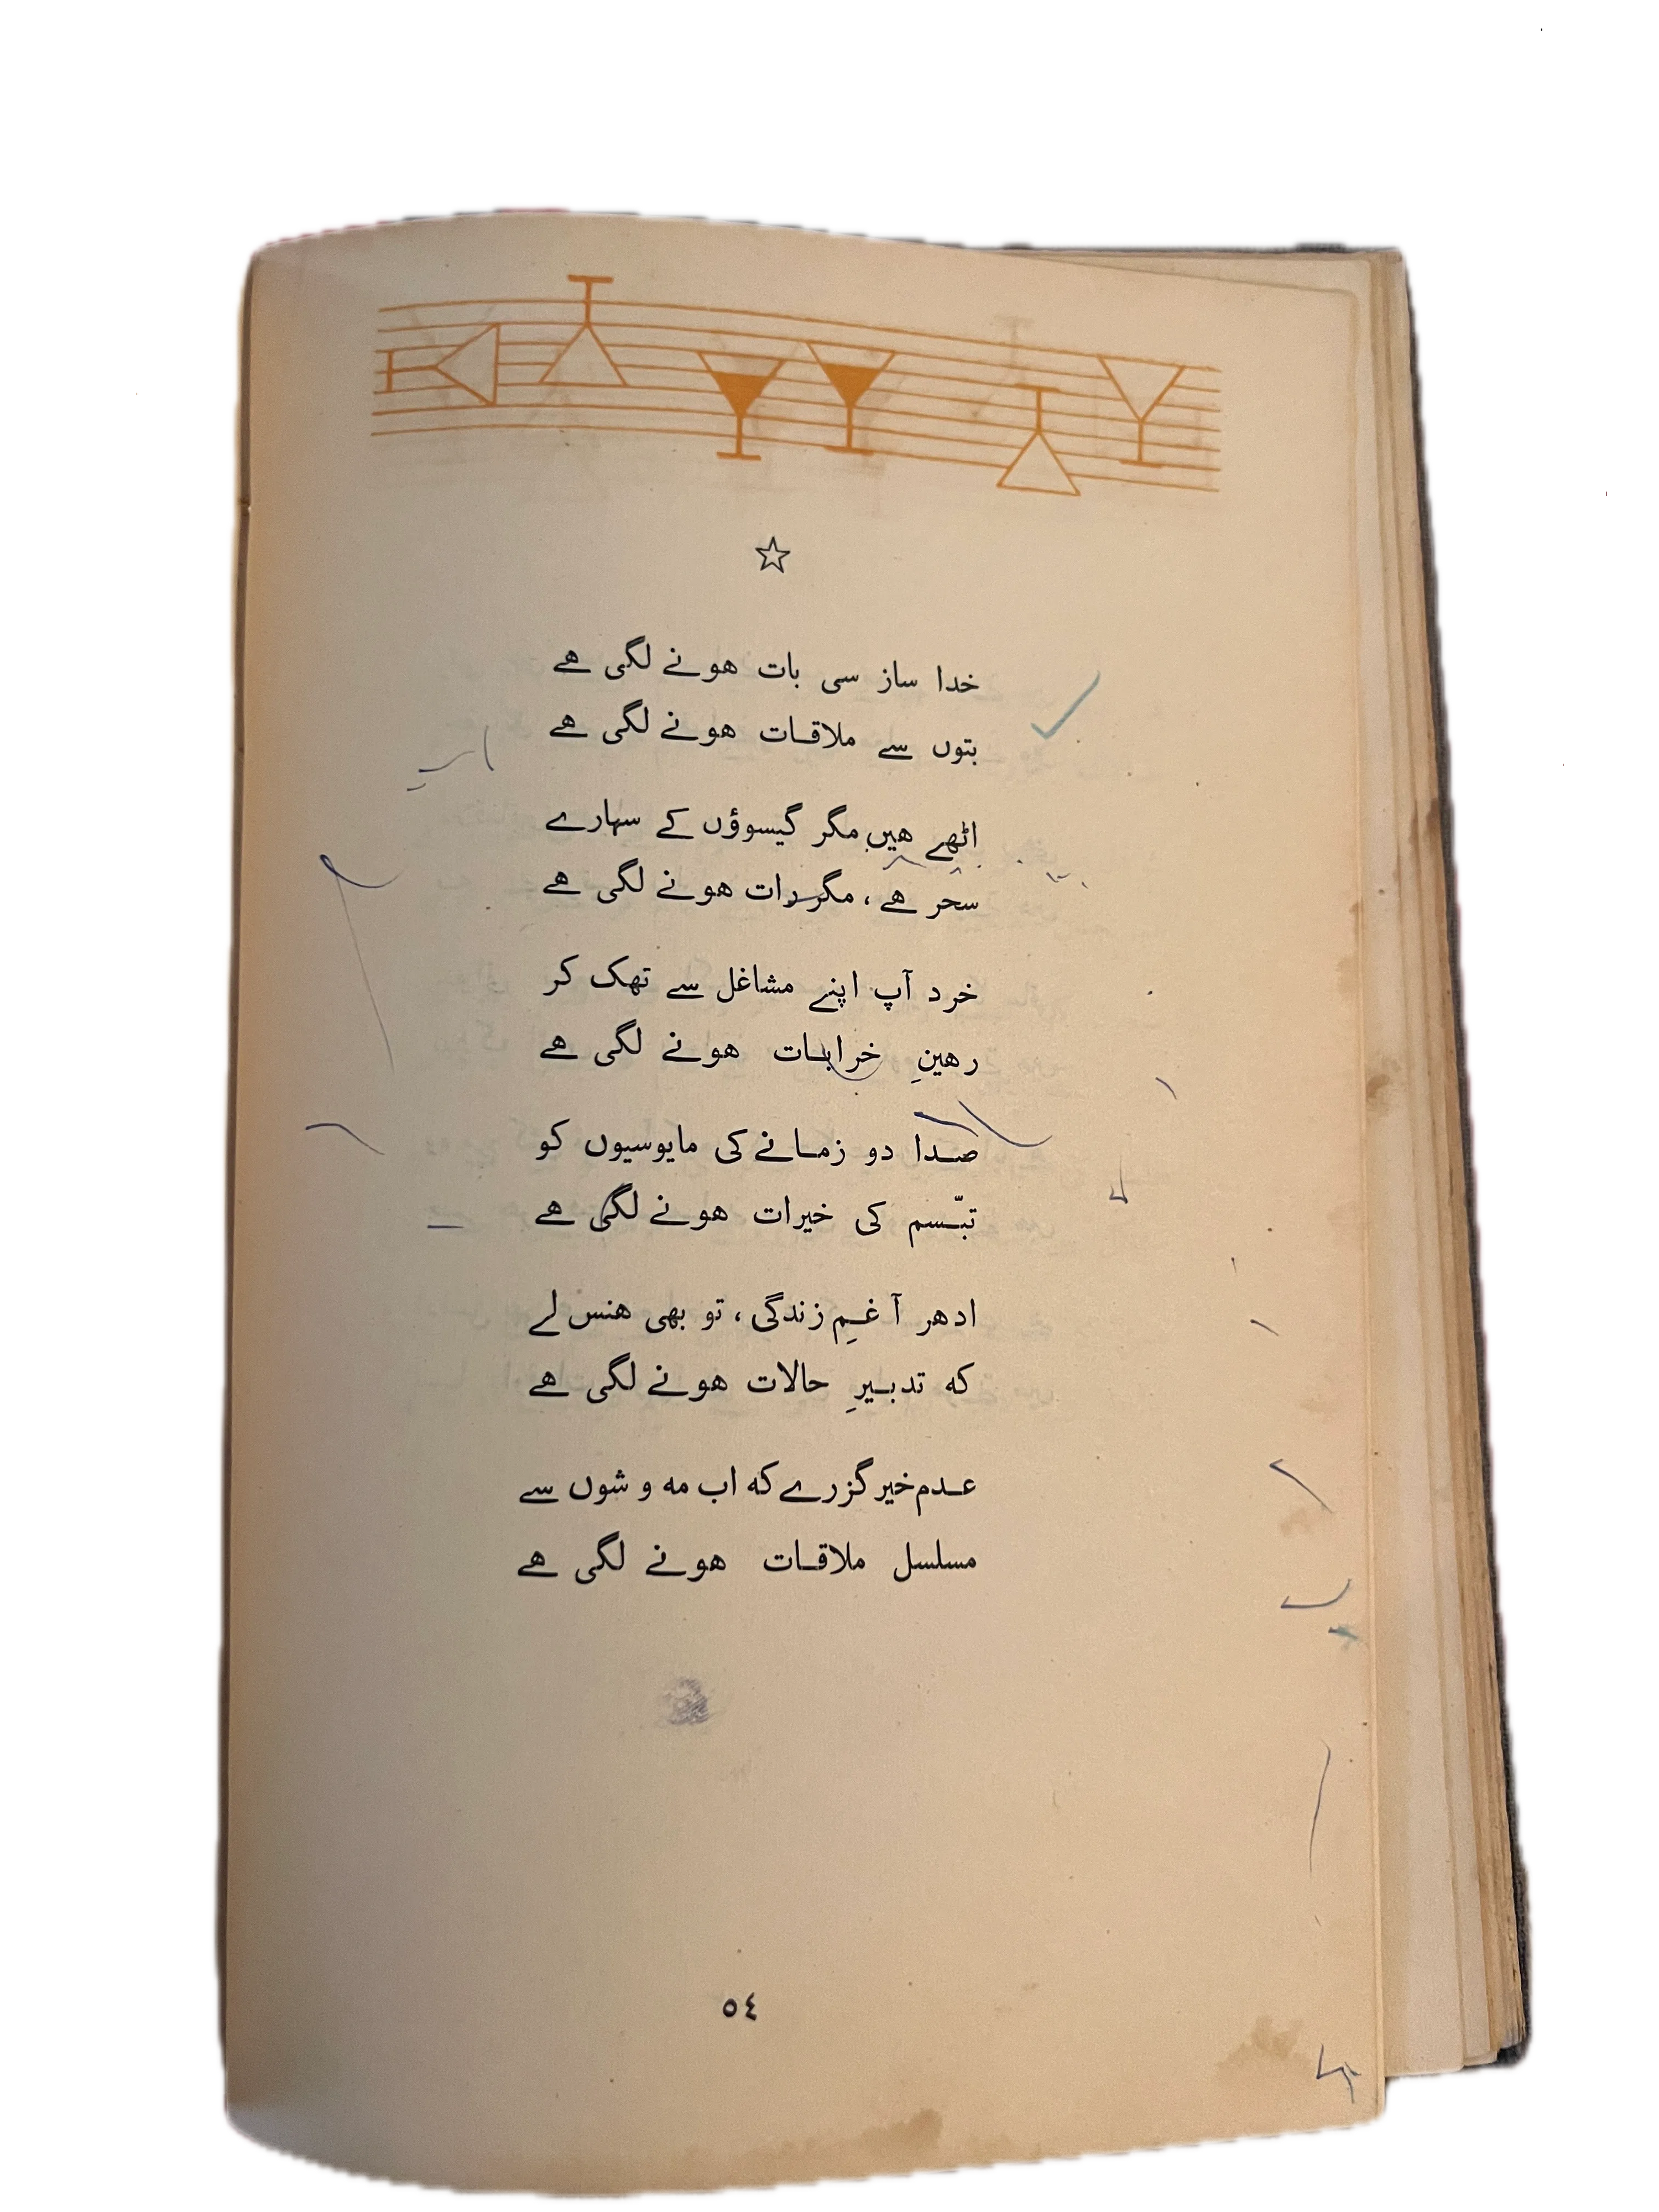 خدا ساز سی بات هونے لگی هے
بتوں سے ملاقات هونے لگی هے
اٹھے هیں مگر گیسوؤں کے سہارے
سحر هے، مگر رات هونے لگی هے
خرد آپ اپنے مشاغل سے تھک کر
رهینِ خرابات هونے لگی هے
صدا دو زمانے کی مایوسیوں کو
تبّسم کی خیرات هونے لگی هے
ادھر آ غمِ زندگی، تو بھی هنس لے
که تدبیرِ حالات هونے لگی هے
عدم خیر گزرے که اب مه و شوں سے
مسلسل ملاقات هونے لگی هے
٥٤